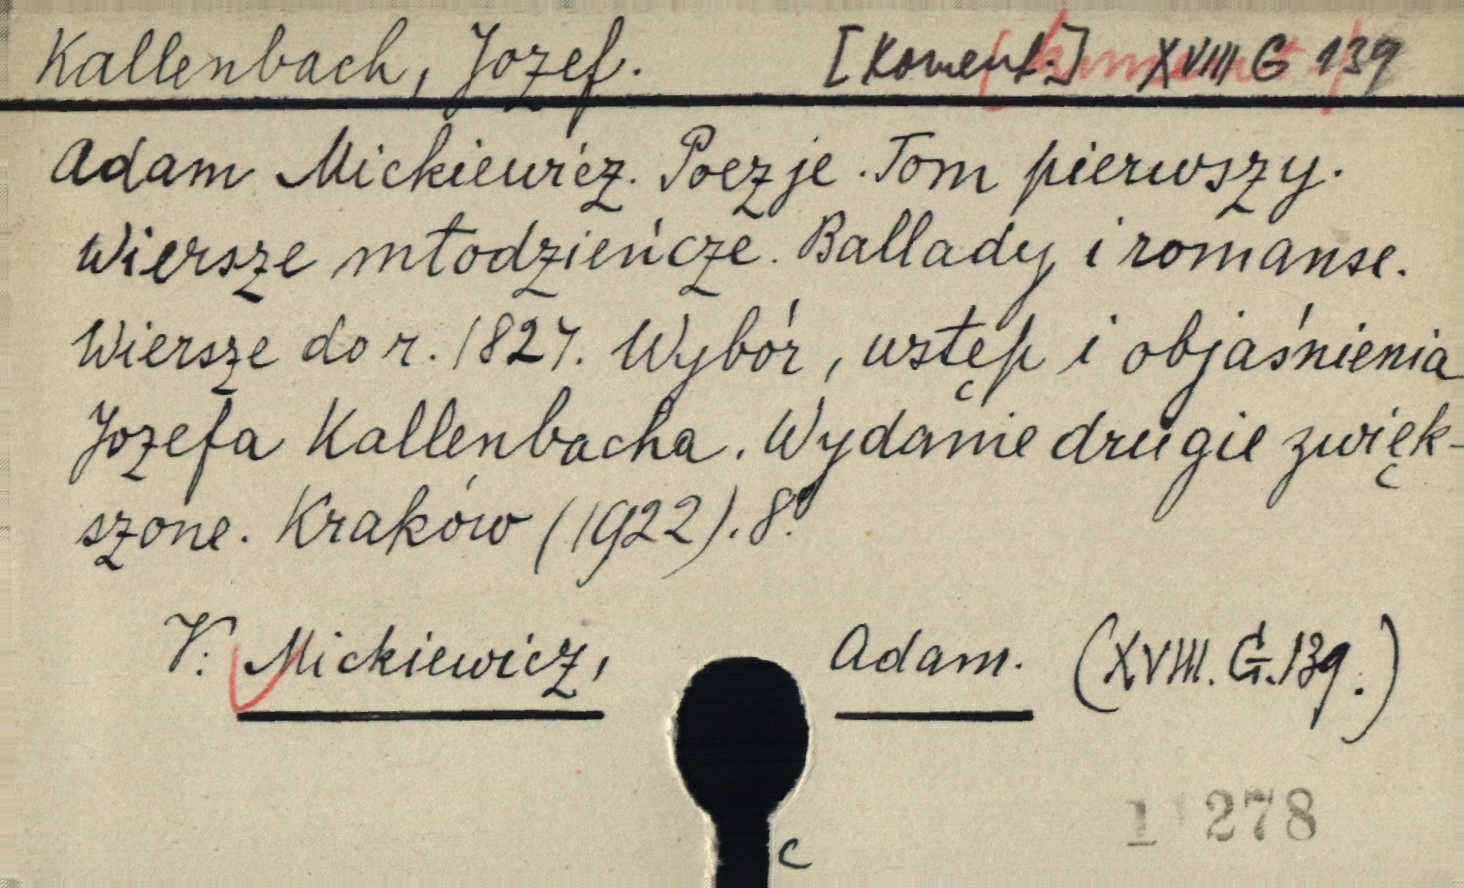 Kallenbach, Jozef. [Koment.] XVIII G 139
Adam Mickiewicz. Poezje. Tom pierwszy.
Wiersze młodzieńcze. Ballady i romanse.
Wiersze do r. 1827. Wybór, wstęp i objaśnienia
Jozefa Kallenbacha. Wydanie drugie zwięk-
szone. Kraków (1922). 8°.
V: Mickiewicz, Adam. (XVIII. G. 139.)
1 278
c